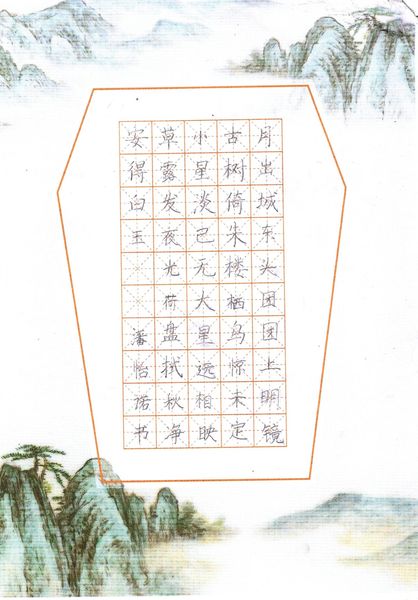 月出城东头团团上明镜
古树倚朱楼栖鸟惊未定
小星淡已无大星远相映
草露发夜光荷盘拭秋净
安得白玉
潘怡诺书